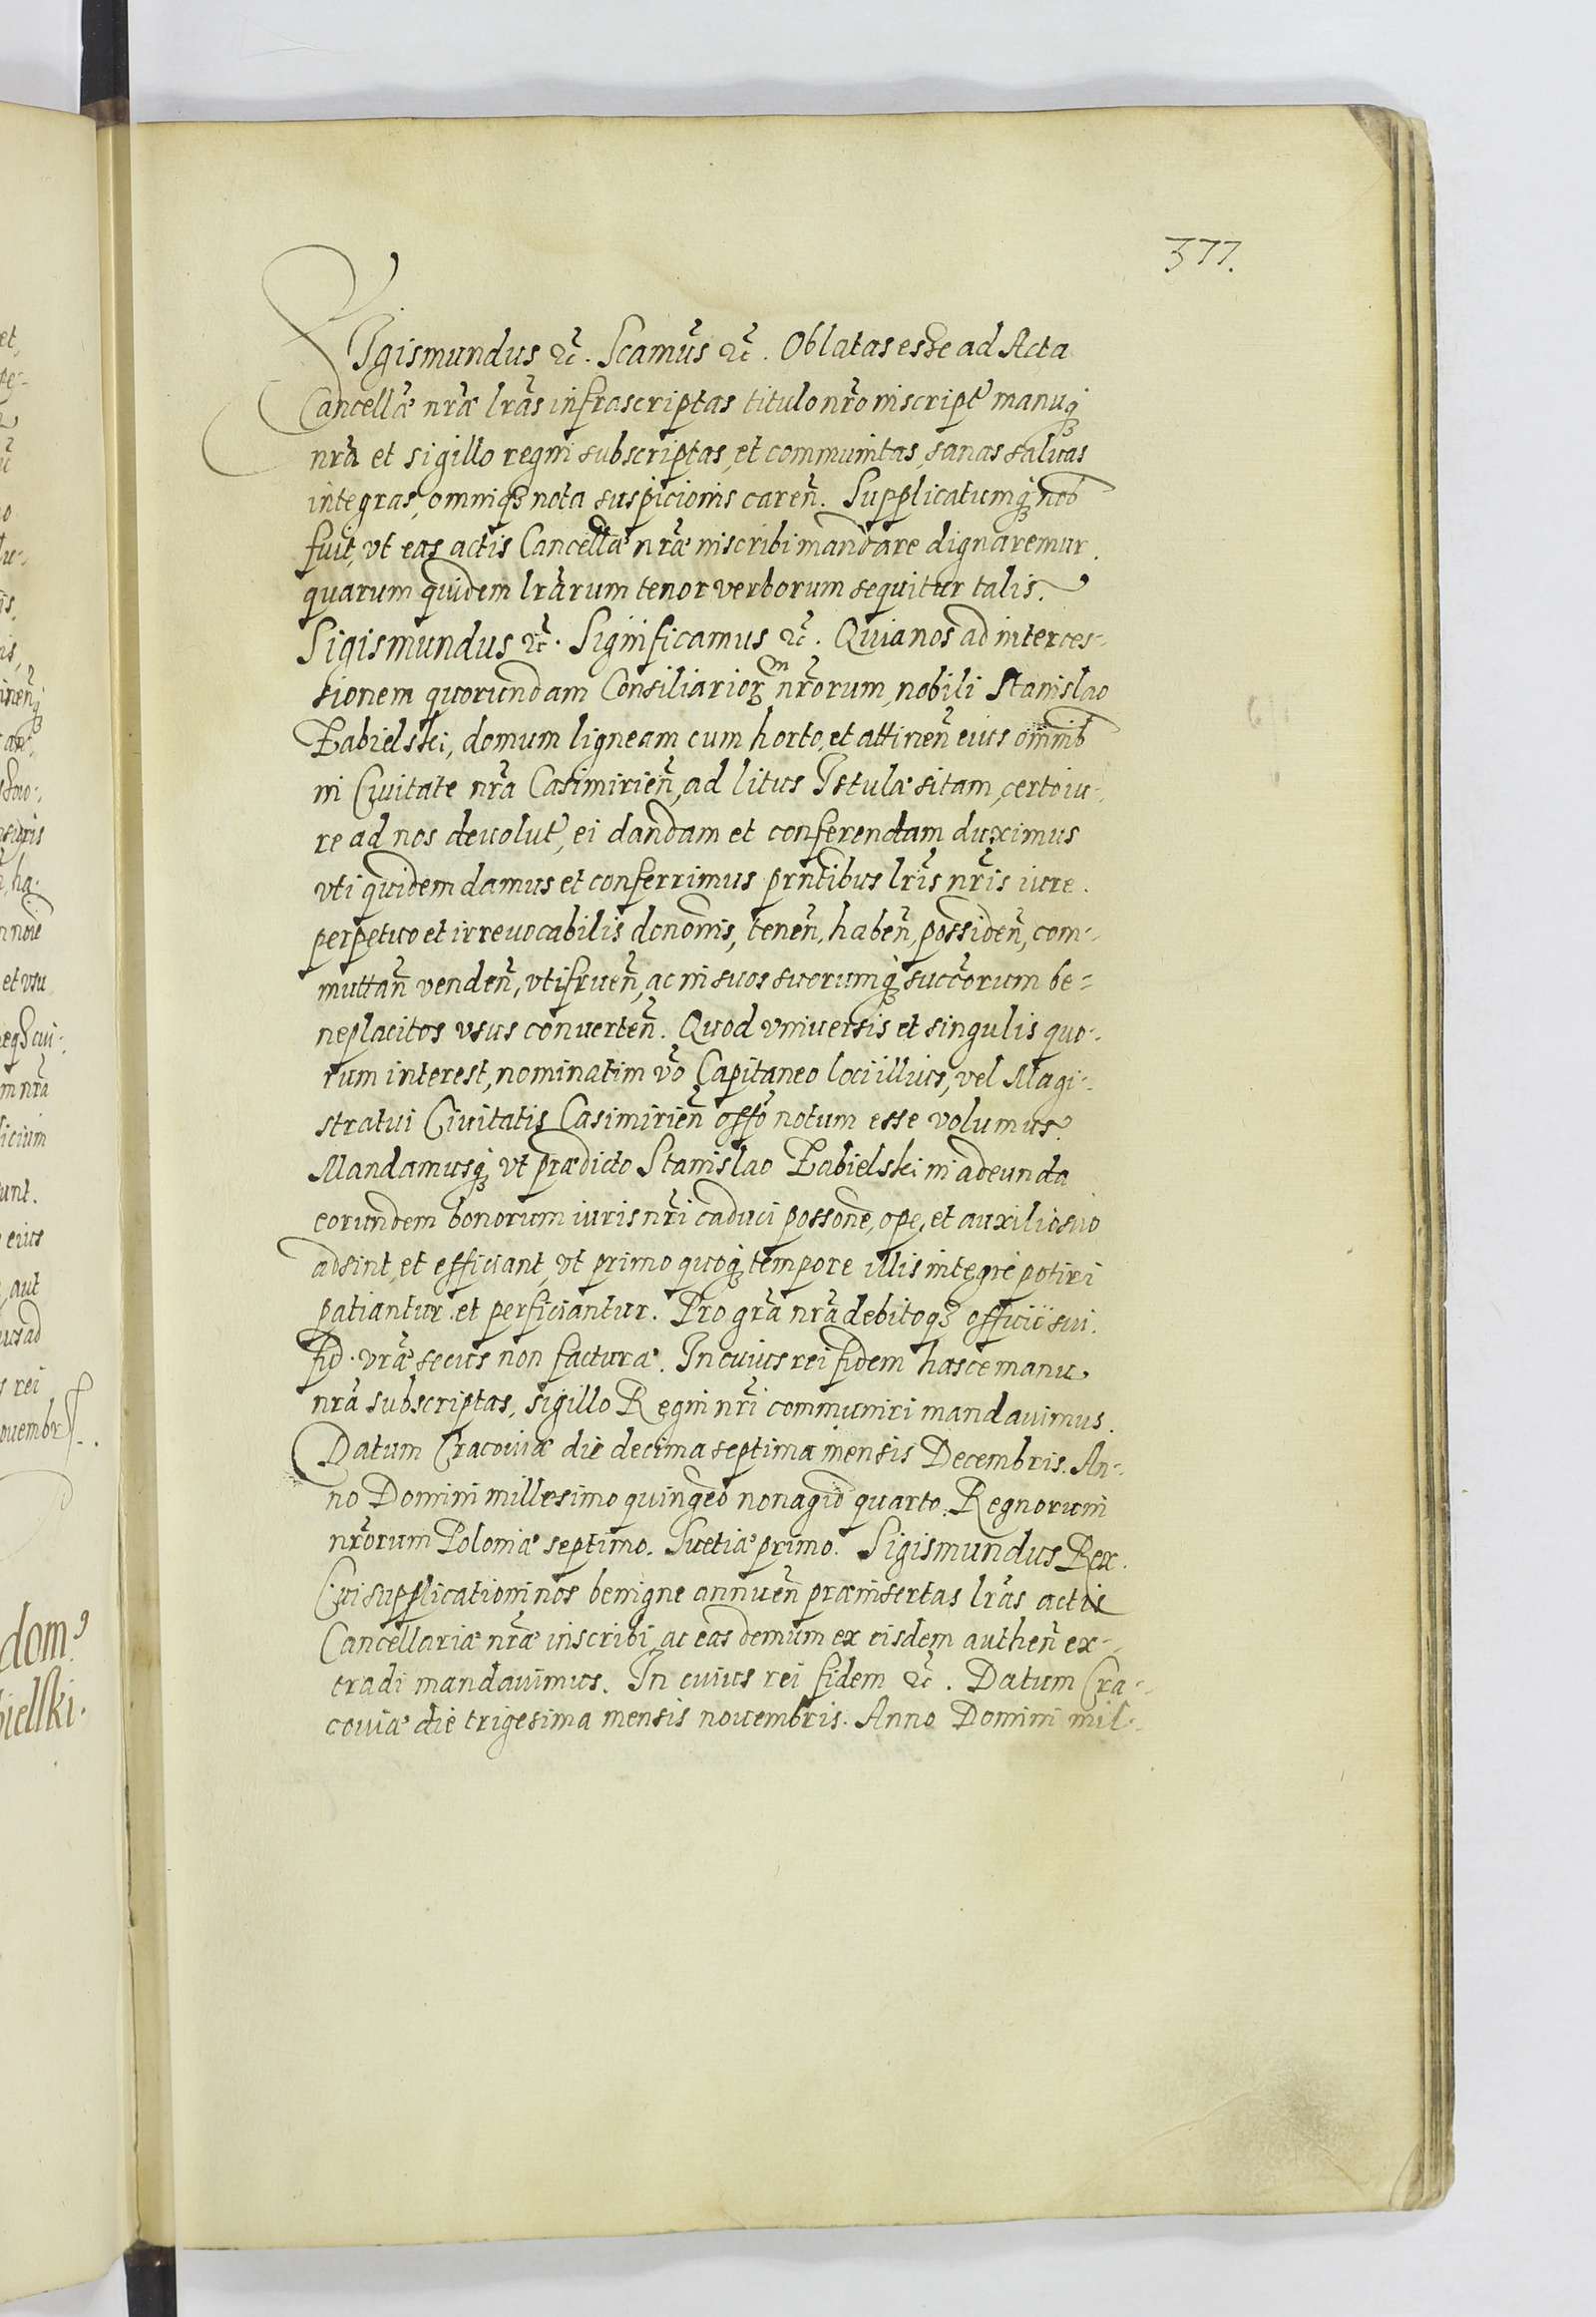 377.
Sigismundus etc̃. Scamũs etc̃. Oblatas esse ad Acta
Cancellæ̃ nr̃æ lr̃as infrascriptas titulo nr̃o inscript' manuq́ꝫ
nr̃a et sigillo regni subscriptas, et communitas, sanas saluas
integras, omniqꝫ nota suspicionis careñ. Supplicatumq́ꝫ nob
fuit, vt eas actis Cancellæ nr̃æ inscribi mandare dignaremur.
quarum quidem lr̃arum tenor verborum sequitur talis.
Sigismundus etc̃. Significamus etc̃. Quia nos ad interces-
sionem quorundam Consiliarioꝝ nr̃orum, nobili Stanislao
Zabielski, domum ligneam cum horto, et attineñ eius omnib
in Ciuitate nr̃a Casimirieñ, ad litus Istulæ sitam, certo iu-
re ad nos deuolut', ei dandam et conferendam duximus
vti quidem damus et conferrimus prñtibus lr̃is nr̃is iure.
perpetuo et irreuocabilis donõnis, teneñ, habeñ, possideñ, com-
muttañ vendeñ, vtifrueñ, ac in suos suorumq́ꝫ succ̃orum be-
neplacitos vsus conuerteñ. Quod vniuersis et singulis quo-
rum interest, nominatim vo᷉ Capitaneo loci illius, vel Magi-
stratui Ciuitatis Casimirieñ offo᷉ notum esse volumus.
Mandamusq́ꝫ vt prædicto Stanislao Zabielski in adeunda
eorundem bonorum iuris nr̃i caduci possone᷉, ope, et auxilio suo
adsint, et efficiant, vt primo quoq́ꝫ tempore illis integre potiri
patiantur et perficiantur. Pro gr̃a nr̃a debitoqꝫ officii sui.
fid. vr̃æ secus non facturæ. In cuius rei fidem hasce manu
nr̃a subscriptas, sigillo Regni nr̃i communiri mandauimus.
Datum Cracouiæ die decima septima mensis Decembris. An-
no Domini millesimo quingeo᷉ nonagio᷉ quarto. Regnorum
nr̃orum Poloniæ septimo. Suetiæ primo. Sigismundus Rex.
Cui supplicationi nos benigne annueñ præinsertas lr̃as actis
Cancellariæ nr̃æ inscribi, ac eas demum ex eisdem autheñ ex-
tradi mandauimus. In cuius rei fidem etc̃. Datum Cra-
couiæ die trigesima mensis nouembris. Anno Domini mil-